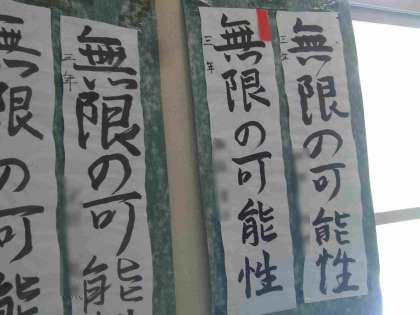 無限の可能性
三年
無限の可能性
三年
無限の可能
三年
限の可